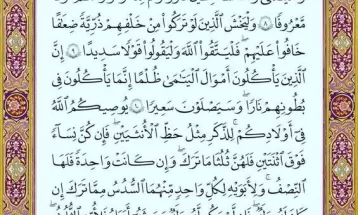 مَّعْرُوفًا ۝٨ وَلْيَخْشَ الَّذِينَ لَوْ تَرَكُوا مِنْ خَلْفِهِمْ ذُرِّيَّةً ضِعَافًا
خَافُوا عَلَيْهِمْ فَلْيَتَّقُوا اللَّهَ وَلْيَقُولُوا قَوْلًا سَدِيدًا ۝٩ إِنَّ
الَّذِينَ يَأْكُلُونَ أَمْوَالَ الْيَتَامَىٰ ظُلْمًا إِنَّمَا يَأْكُلُونَ فِي
بُطُونِهِمْ نَارًا ۖ وَسَيَصْلَوْنَ سَعِيرًا ۝١٠ يُوصِيكُمُ اللَّهُ
فِي أَوْلَادِكُمْ ۖ لِلذَّكَرِ مِثْلُ حَظِّ الْأُنثَيَيْنِ ۚ فَإِن كُنَّ نِسَاءً
فَوْقَ اثْنَتَيْنِ فَلَهُنَّ ثُلُثَا مَا تَرَكَ ۖ وَإِن كَانَتْ وَاحِدَةً فَلَهَا
النِّصْفُ ۚ وَلِأَبَوَيْهِ لِكُلِّ وَاحِدٍ مِّنْهُمَا السُّدُسُ مِمَّا تَرَكَ إِن